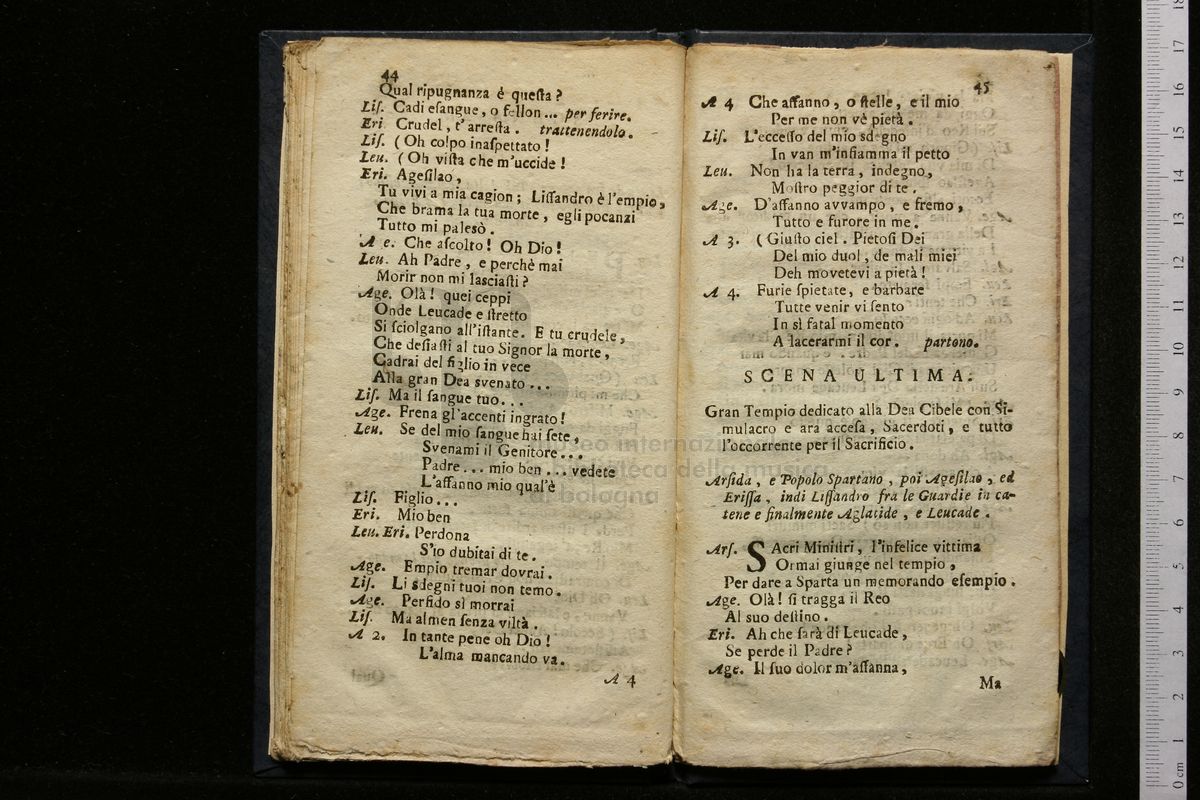 44
Qual ripugnanza è queſta?
Liſ. Cadi eſangue, o fellon... per ferire.
Eri Crudel, t'arreſta. trattenendolo.
Liſ. (Oh colpo inaſpettato!
Leu. (Oh viſta che m'uccide!
Eri. Ageſilao,
Tu vivi a mia cagion; Liſſandro è l'empio,
Che brama la tua morte, egli pocanzi
Tutto mi palesò.
A e. Che aſcolto! Oh Dio!
Leu. Ah Padre, e perchè mai
Morir non mi laſciaſti?
Age. Olà! quei ceppi
Onde Leucade e ſtretto
Si ſciolgano all'iſtante. E tu crudele,
Che deſiaſti al tuo Signor la morte,
Cadrai del figlio in vece
Alla gran Dea svenato...
Liſ. Ma il ſangue tuo...
Age. Frena gl'accenti ingrato!
Leu. Se del mio ſangue hai ſete,
Svenami il Genitore...
Padre... mio ben... vedete
L'affanno mio qual'è
Liſ. Figlio...
Eri. Mio ben
Leu. Eri. Perdona
S'io dubitai di te.
Age. Empio tremar dovrai.
Liſ. Li sdegni tuoi non temo.
Age. Perfido sì morrai
Liſ. Ma almen ſenza viltà.
A 2. In tante pene oh Dio!
L'alma mancando va.
A 4
45
A 4 Che affanno, o ſtelle, e il mio
Per me non vè pietà.
Liſ. L'ecceſſo del mio sdegno
In van m'infiamma il petto
Leu. Non ha la terra, indegno,
Moſtro peggior di te.
Age. D'affanno avvampo, e fremo,
Tutto e furore in me.
A 3. (Giuſto ciel. Pietoſi Dei
Del mio duol, de mali miei
Deh movetevi a pietà!
A 4. Furie ſpietate, e barbare
Tutte venir vi ſento
In sì fatal momento
A lacerarmi il cor. partono.
SCENA ULTIMA.
Gran Tempio dedicato alla Dea Cibele con Si-
mulacro e ara acceſa, Sacerdoti, e tutto
l'occorrente per il Sacrificio.
Arſida, e Popolo Spartano, poi Ageſilao, ed
Eriſſa, indi Liſſandro fra le Guardie in ca-
tene e finalmente Aglatide, e Leucade.
Arſ. SAcri Miniſtri, l'infelice vittima
Ormai giunge nel tempio,
Per dare a Sparta un memorando eſempio.
Age. Olà! ſi tragga il Reo
Al suo deſtino.
Eri. Ah che ſarà di Leucade,
Se perde il Padre?
Age. Il ſuo dolor m'affanna,
Ma